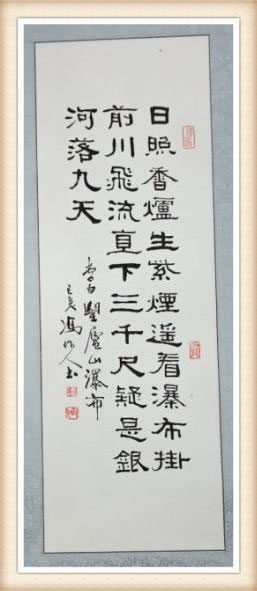 日照香爐生紫煙遥看瀑布掛
前川飛流直下三千尺疑是銀
河落九天
李白望廬山瀑布